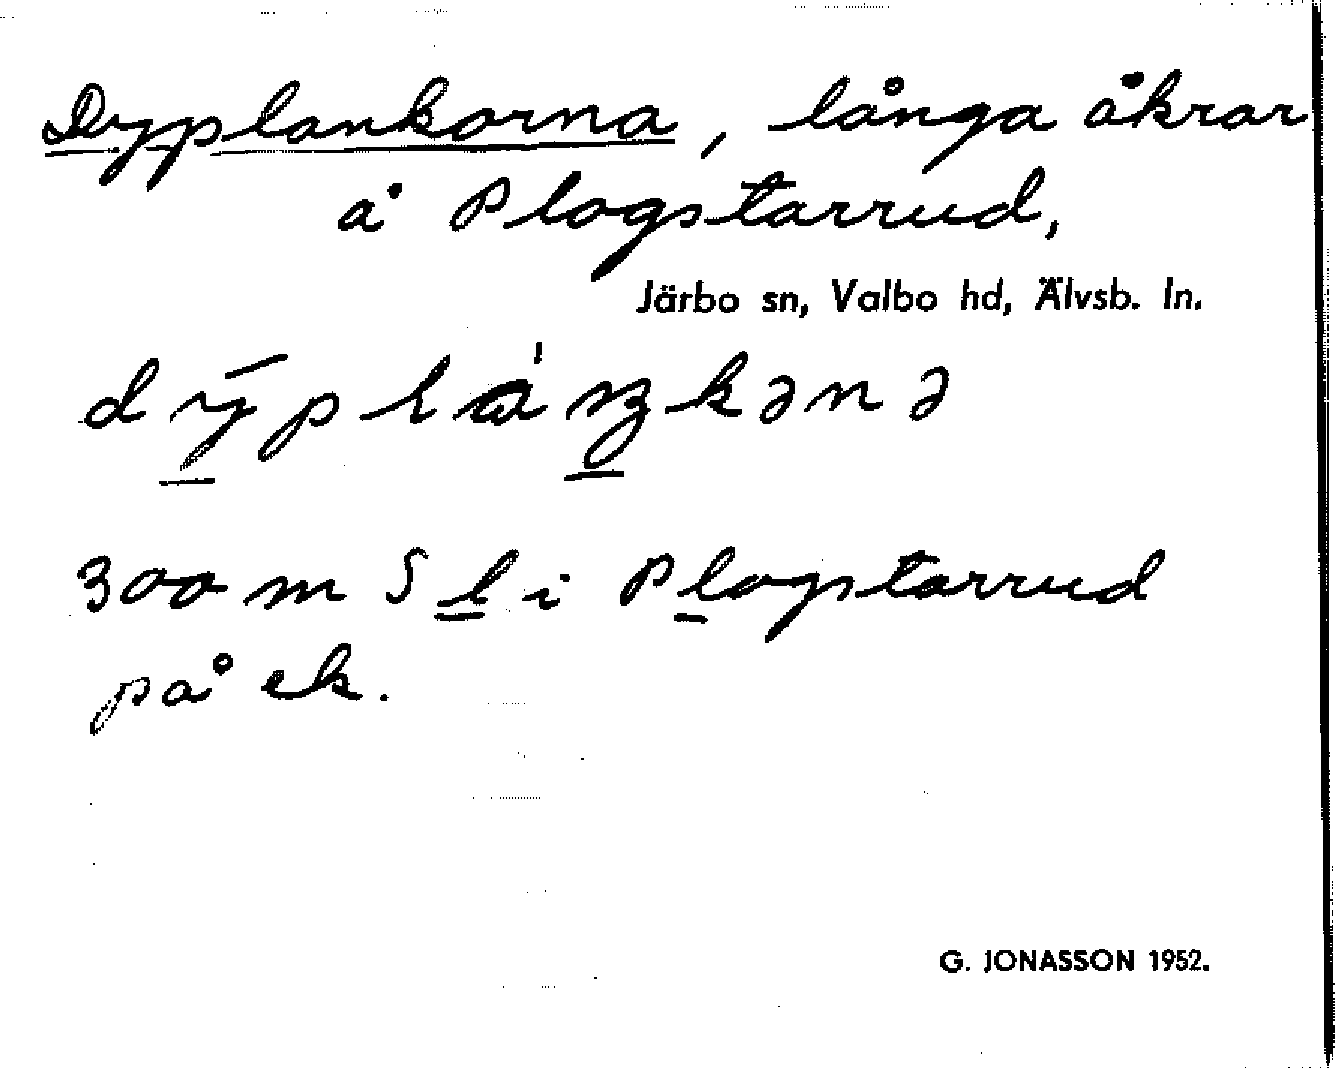 Dyplankorna, långa åkrar
å Plogstarrud,
Järbo sn, Valbo hd, Älvsb. ln.
300 m S l i Plogstarrud
på ek.
G. JONASSON 1952.